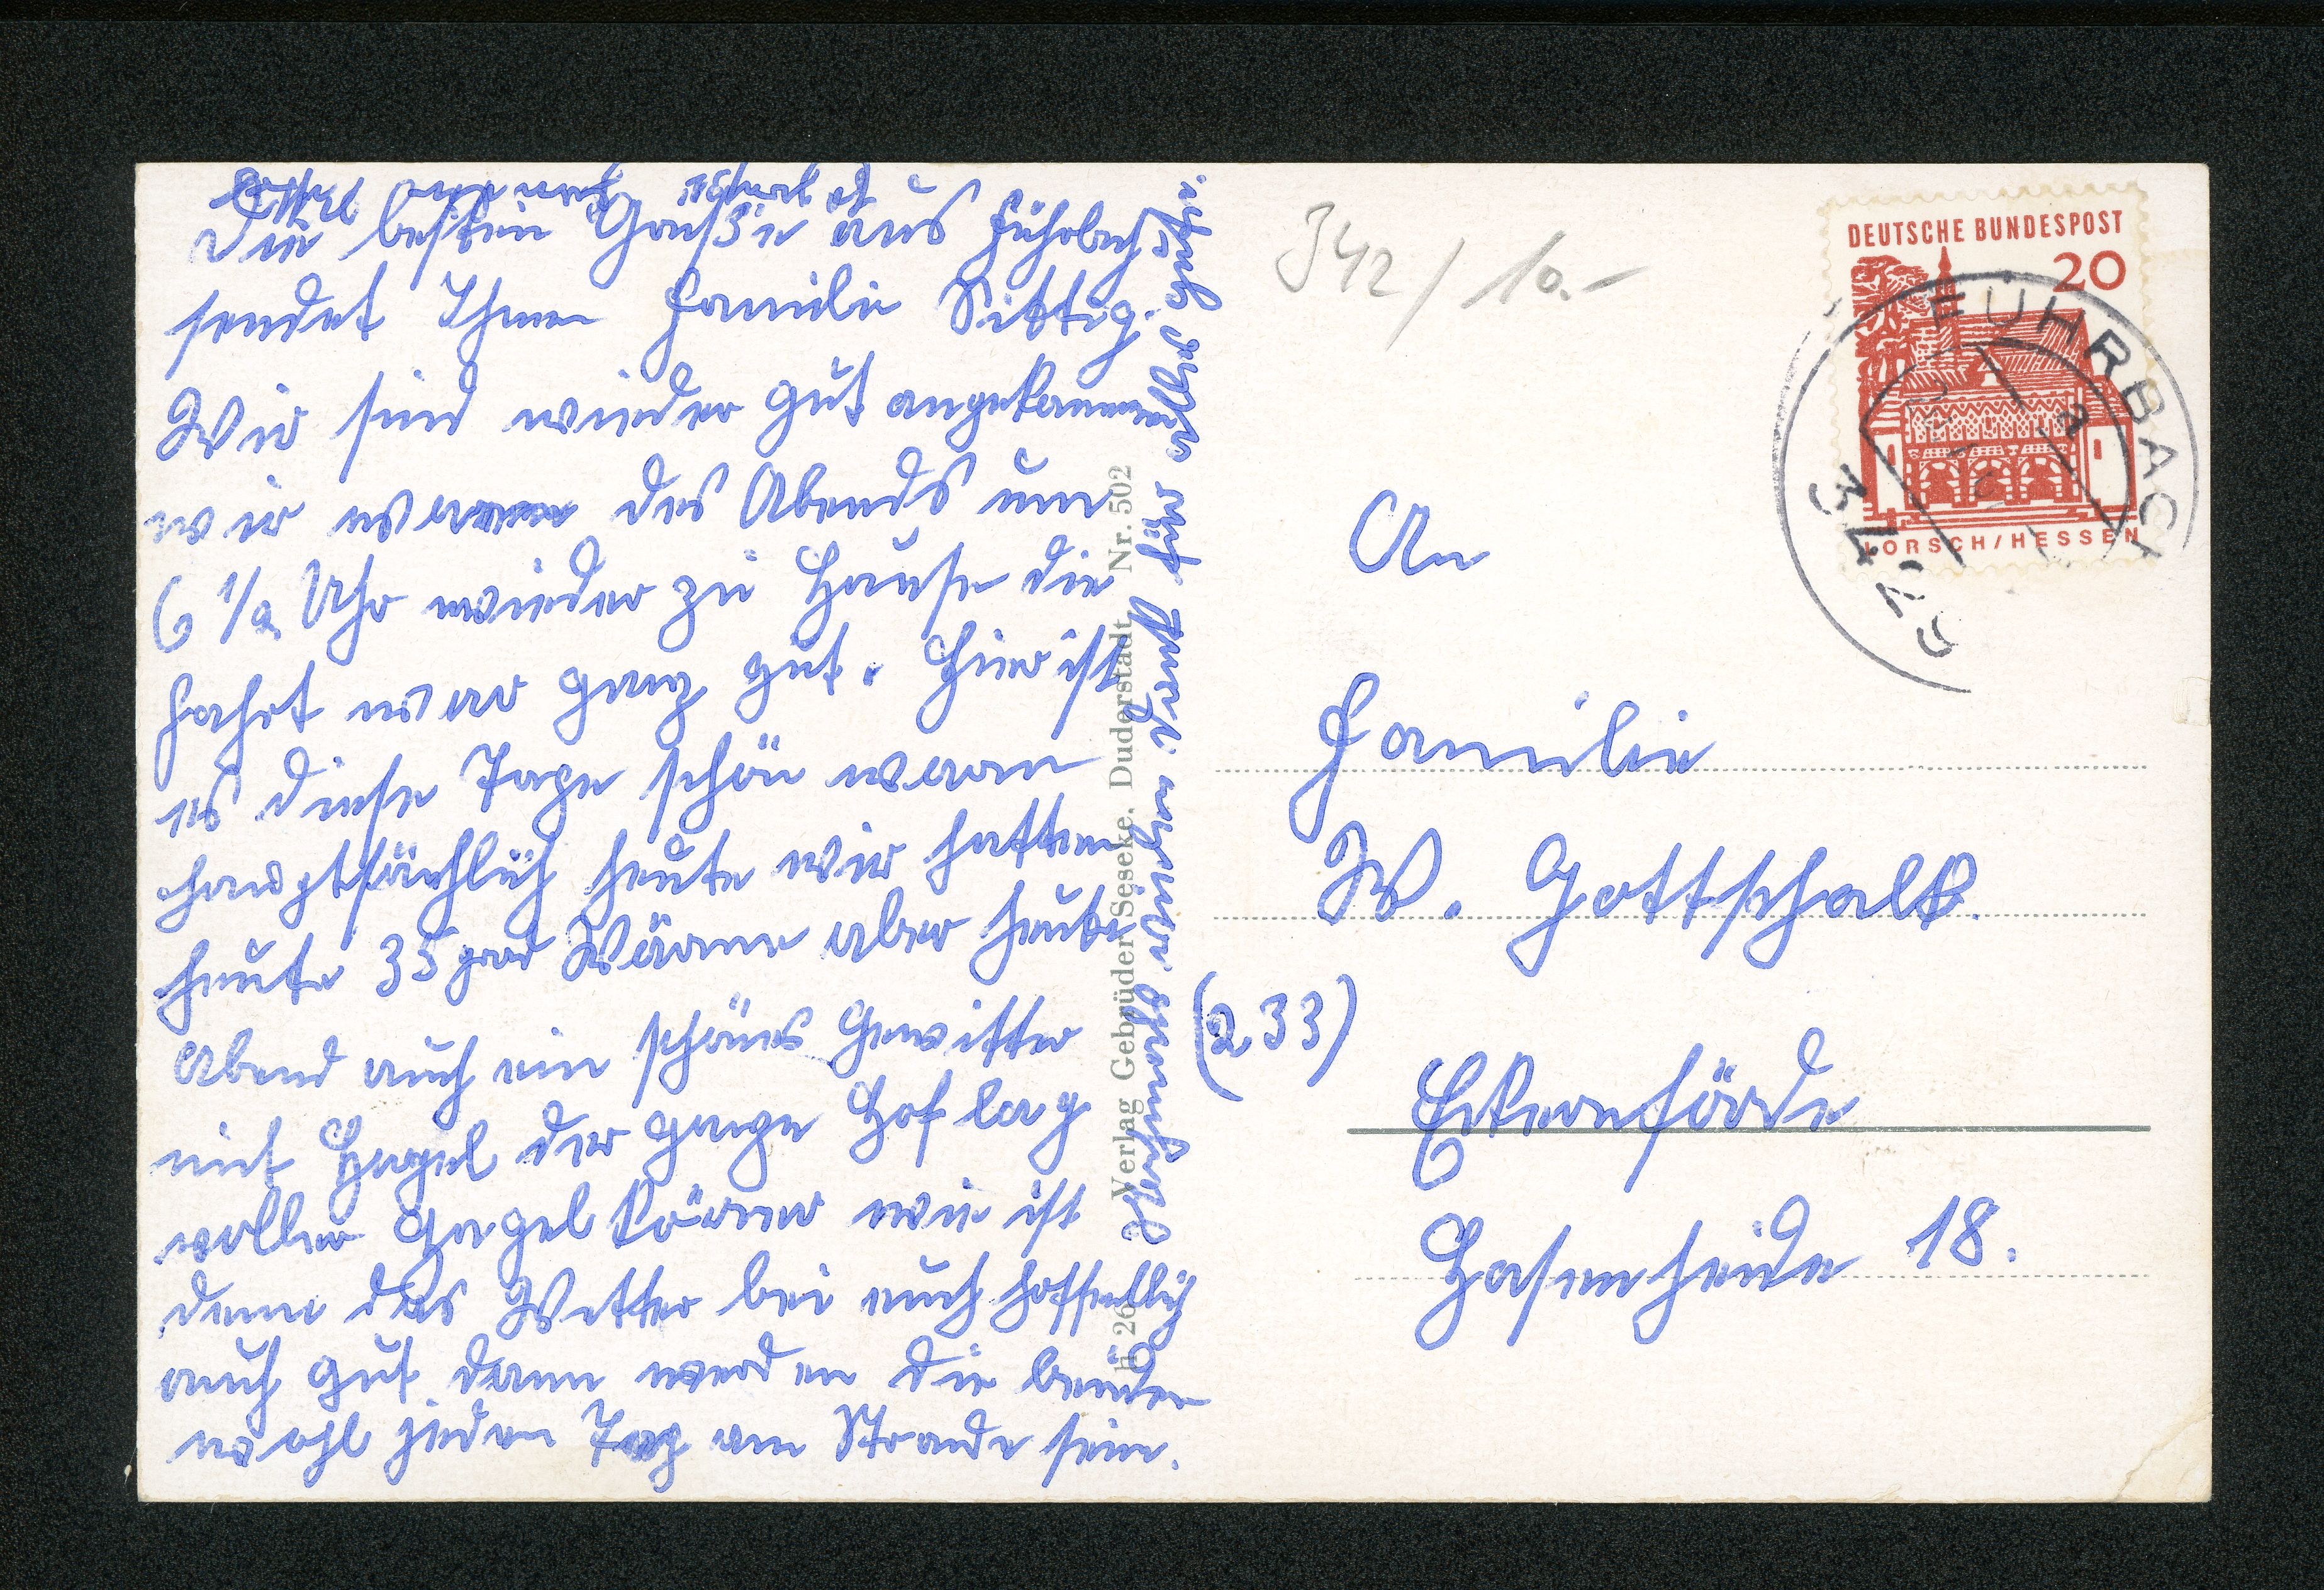 Die besten Grüße aus Führbach
sendet Ihnen Familie Sittig.
Wir sind wieder gut angekommen
wir waren des Abends um
6 1/2 Uhr wieder zu Hause die
Fahrt war ganz gut. Hier ist
es diese Tage schön warm
hauptsächlich heute wir hatten
heute 35 grad Wärme aber heute
Abend auch ein schönes Gewitter
mit Hagel der ganze Hof lag
voller Hagel körner wie ist
denn das Wetter bei euch hoffentlich
auch gut dann werden die beiden
wohl jeden Tag am Strande sein.
Nochmals vielen Dank für alles
Verlag Gebrüder Seseke, Duderstadt Nr. 502
342/10.-
DEUTSCHE BUNDESPOST
20
LORSCH/HESSEN
FUHRBACH
3429
a
An
Familie
W. Gottschalk.
(233)
Eckernförde
Hasenheide 18.